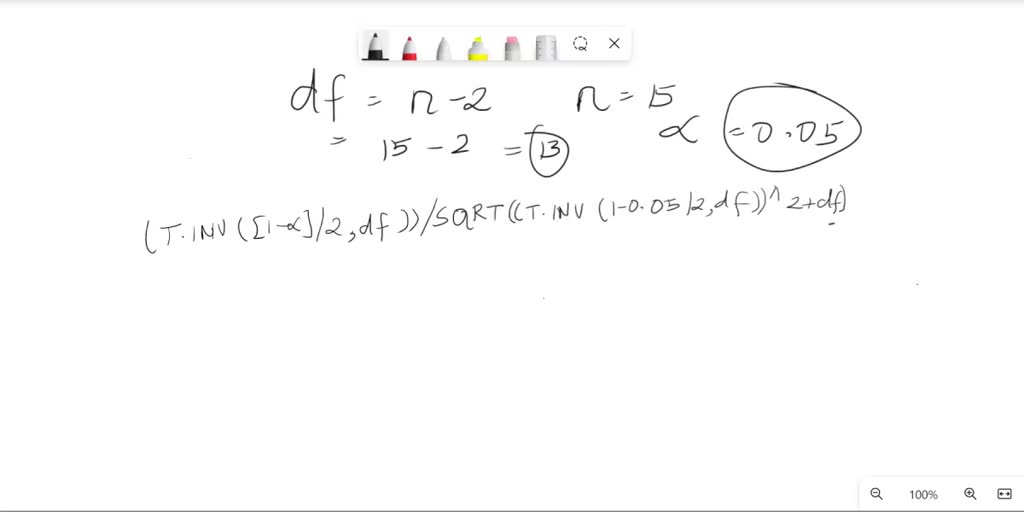 df = n-2 n = 15
= 15 - 2 = 13 α = 0.05
(T.INV([1-α]/2,df))/SQRT((T.INV (1-0.05/2,df))^2+df)
100%